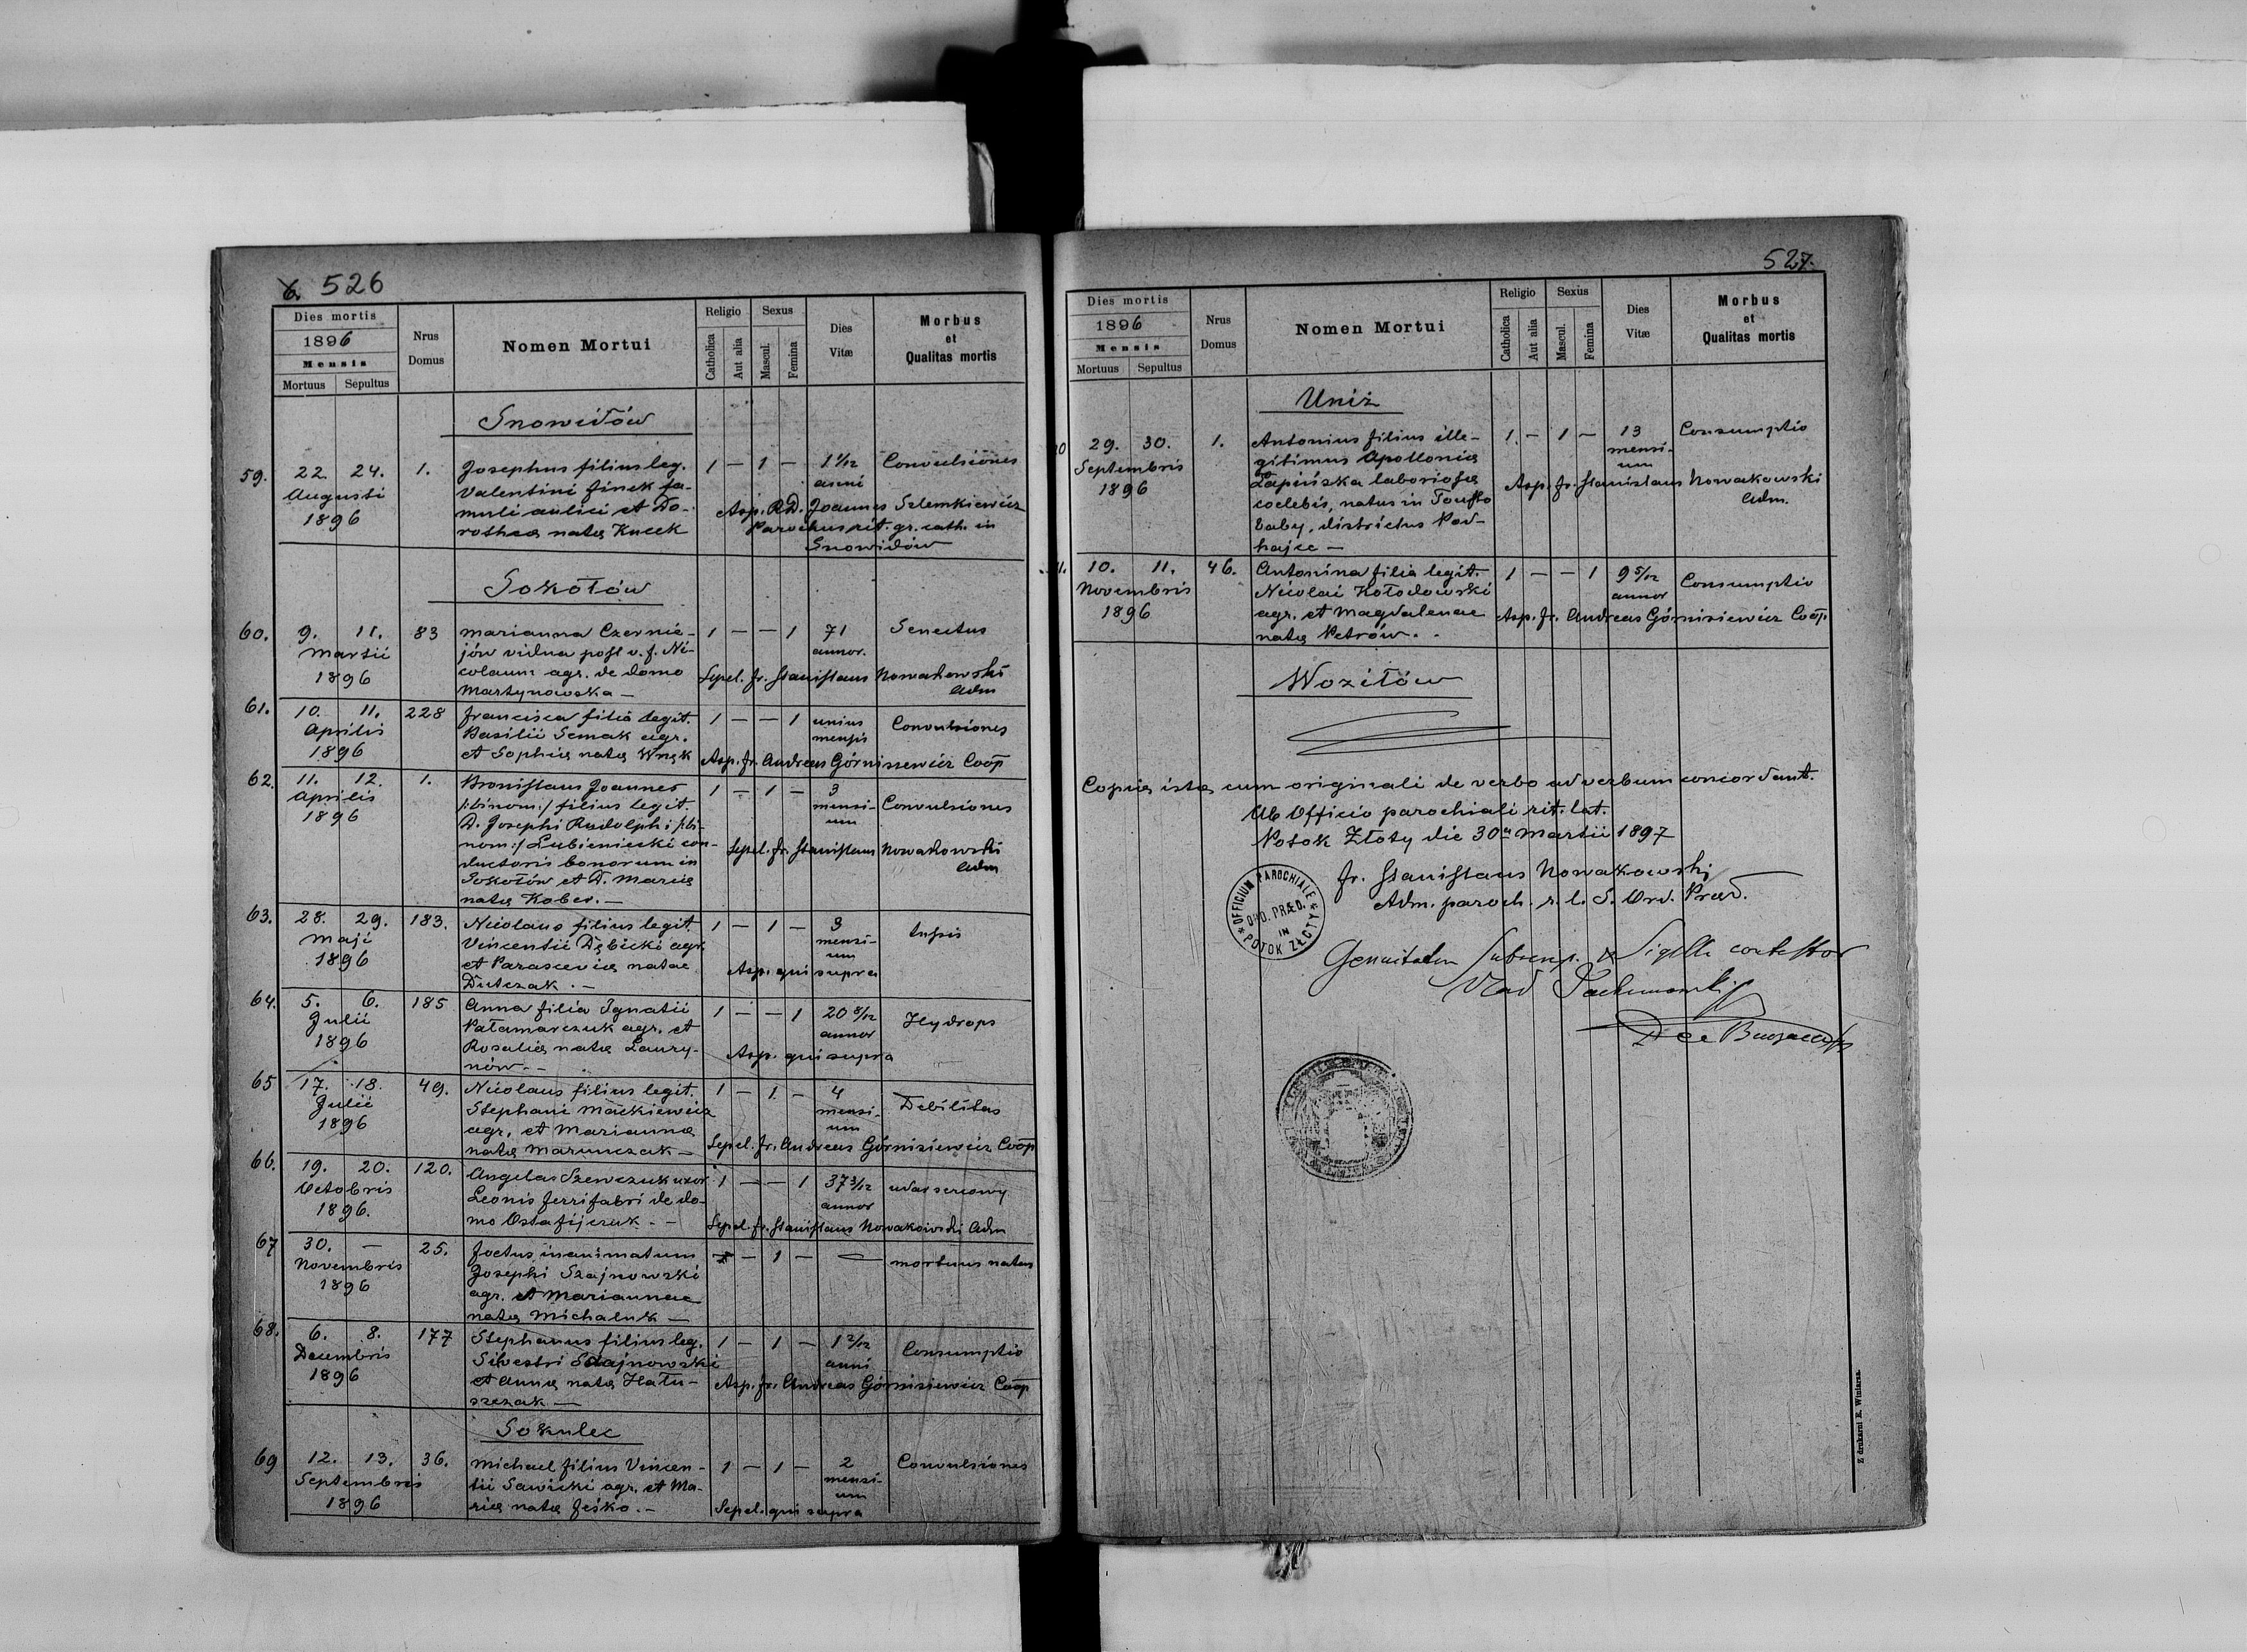 526
Dies mortis
1896
Mensis
Mortuus Sepultus
Nrus
Domus
Nomen Mortui
Religio
Catholica
Aut alia
Sexus
Mascul.
Femina
Dies
Vitæ
Morbus
et
Qualitas mortis
Snowidów
59. 22 24. 1. Josephus filius leg. 1 — 1 — 1 1/12 Convulsiones
Augusti Valentini Jinek fa- anni
1896 muli aulici et Do- Asp. R.D. Joannes Szlemkiewicz
rothea nata Kucek Parochus rit. gr. cath. in
Snowidów
Sokołów
60. 9. 11. 83 Marianna Czernie- 1 — — 1 71 Senectus
Martii jów vidua post v. f. Ni- annor.
1896 colaum agr. de domo Sepel. fr. Stanislaus Nowakowski
Martynowska — Adm
61. 10. 11. 228 Francisca filia legit. 1 — — 1 unius Convulsiones
Aprilis Basilii Semak agr. mensis
1896 et Sophia nata Wnęk Asp. fr. Andreas Górnisiewicz Coop
62. 11. 12. 1. Bronislaus Joannes 1 — 1 — 3 Convulsiones
Aprilis /:binom:/ filius legit. mensi-
1896 D. Josephi Rudolphi /:bi- um
nom:/ Lubieniecki con- Sepel. fr. Stanislaus Nowakowski
ductoris bonorum in Adm
Sokołów et D. Maria
nata Kober. —
63. 28. 29. 183. Nicolaus filius legit. 1 — 1 — 3 tussis
Maji Vincentii Dębicki agr. mensi-
1896 et Parascevia natae um
Dutczak. — Asp. qui supra
64. 5. 6. 185 Anna filia Ignatii 1 — — 1 20 8/12 Hydrops
Julii Pałamarczuk agr. et annor
1896 Rosalia nata Laury- Asp. qui supra
nów —
65 17. 18. 49. Nicolaus filius legit. 1 — 1 — 4 Debilitas
Julii Stephani Mackiewicz mensi-
1896 agr. et Marianna um
nata Marunczak — Sepel. fr. Andreas Górnisiewicz Coop
66. 19. 20. 120. Angela Szewczuk uxor 1 — — 1 37 3/12 udar sercowy
Octobris Leonis ferrifabri de do- annor
1896. mo Ostafijczuk — Sepel. fr. Stanislaus Nowakowski Adm
67 30. — 25. Foetus inanimatum — 1 — — mortuus natus
Novembris Josephi Szajnowski
1896 agr. et Mariannae
nata Michaluk —
68. 6. 8. 177 Stephanus filius leg. 1 — 1 — 1 2/12 Consumptio
Decembris Silvestri Szajnowski anni
1896 et Anna nata Hału- Asp. fr. Andreas Górnisiewicz Coop
szczak —
Sokulec
69 12. 13. 36. Michael filius Vincen- 1 — 1 — 2 Convulsiones
Septembris tii Sawicki agr. et Ma- mensi-
1896 ria nata Jeśko. — um
Sepel. qui supra
527.
Dies mortis
1896
Mensis
Mortuus Sepultus
Nrus
Domus
Nomen Mortui
Religio
Catholica
Aut alia
Sexus
Mascul.
Femina
Dies
Vitæ
Morbus
et
Qualitas mortis
Uniż
29. 30. 1. Antonius filius ille- 1. — 1 — 13 Consumptio
Septembris gitimus Apollonia mensi-
1896 Łapińska laboriosa um
coelebis, natus in Asp. fr. Stanislaus Nowakowski
baby, districtus Pod- Adm.
hajce —
10. 11. 46. Antonina filia legit. 1 — — 1 9 5/12 Consumptio
Novembris Nicolai Kołodowski annor
1896 agr. et Magdalenae Asp. fr. Andreas Górnisiewicz Coop.
nata Petrów.
Woziłów
Copia ista cum originali de verbo ad verbum concordant.
Ab Officio parochiali rit. lat.
Potok Złoty die 30a Martii 1897
fr. Stanislaus Nowakowski
Adm. paroch. r. l. S. Ord. Præd.
OFFICIUM PAROCHIALE
ORD. PRÆD.
IN
POTOK ZŁOTY
Subscrip. & Sigilli contestor
Z drukarni E. Winiarza.